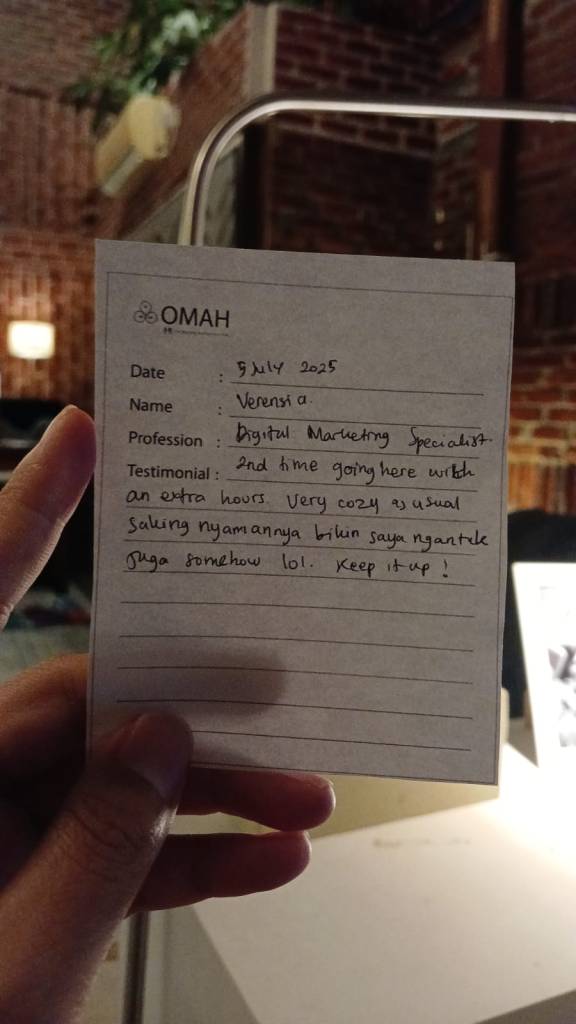 OMAH
Date : 5 July 2025
Name : Verensia.
Profession : Digital Marketing Specialist.
Testimonial : 2nd time going here with
an extra hours. Very cozy as usual
saking nyamannya bikin saya ngantuk
juga somehow lol. Keep it up!